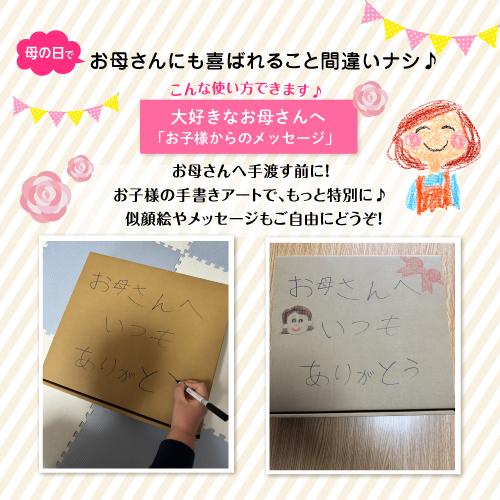 母の日で
お母さんにも喜ばれること間違いナシ♪
こんな使い方できます♪
大好きなお母さんへ
「お子様からのメッセージ」
お母さんへ手渡す前に!
お子様の手書きアートで、もっと特別に♪
似顔絵やメッセージもご自由にどうぞ!
お母さんへ
いつも
ありがとう
お母さんへ
いつも
ありがとう